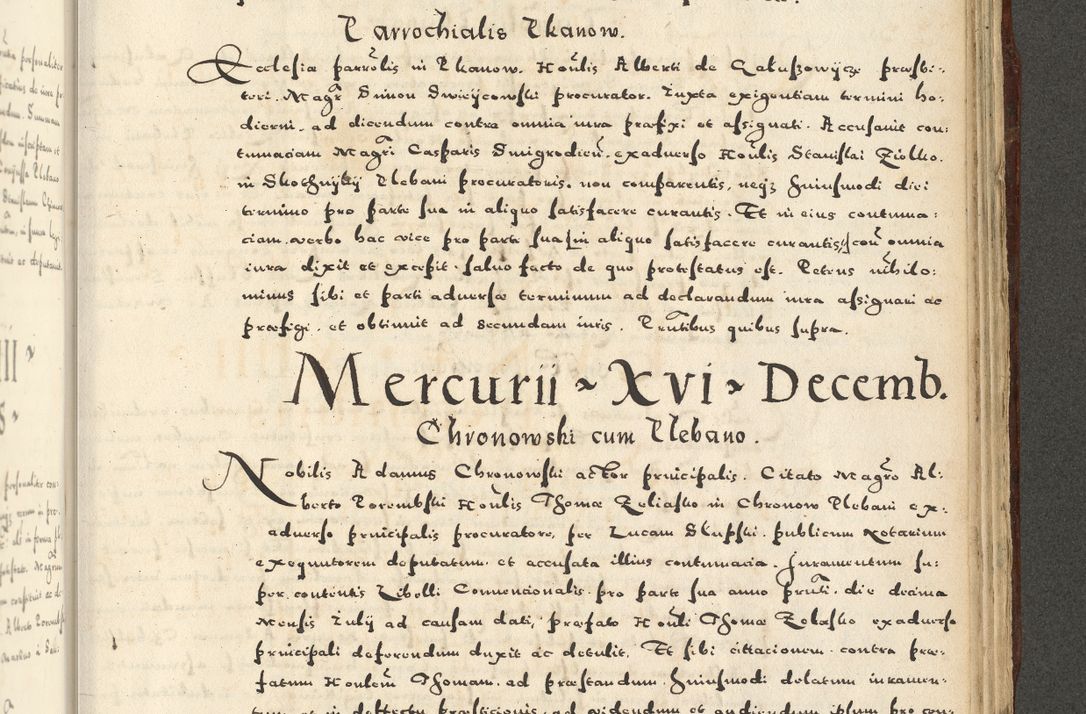 Parrochialis Pkanow.
Ecclesiæ parrolis in Pkanow. Honlis Alberti de Galuszowycze præsbi-
teri. Magr Simon Swieycowski procurator. Iuxta exigentiam termini ho-
dierni. ad dicendum contra omnia iura præfixi et assignati. Accusauit con-
tumaciam Magri Casparis Smigrodien. exaduerso Honlis Stanislai Ziolko.
in Skothnyky Plebani procuratoris. non comparentis, neqz huiusmodi diei
termino pro parte sua in aliquo satisfacere curantis. Et in eius contuma:
ciam. verbo hac vice pro parte sua [in aliquo satisfacere curantis] con omnia
iura dixit et excepit. saluo facto de quo protestatus est. Petens nihilo:
minus sibi et parti aduersæ terminum ad declarandum iura assignari ac
præfigi. et obtinuit ad secundam iuris. Pruntibus quibus supra.
Mercurii ~ Xvi ~ Decemb.
Chronowski cum Plebano.
Nobilis Adamus Chronowski actor principalis. Citato Magro Al:
berto Porembski Honlis Thomæ Zeliasko in Chronow Plebani ex-
aduerso principalis procuratore, per Lucam Skupski. publicum Notarium
exequutorem deputatum. et accusata illius contumacia. Iuramentum su:
per contentis Libelli Conuencionalis. pro parte sua anno prnti. die decima
Mensis Iulij ad causam dati, præfato Honli Thomæ Zelasko exaduerso
principali deferendum duxit ac detulit. Et sibi cittacionem. contra præ-
fatum Honlem Thomam. ad præstandum. huiusmodi delatum iuramen-
tum et in deffectu præsticionis. ad videndum et audiendum ipsum pro con-